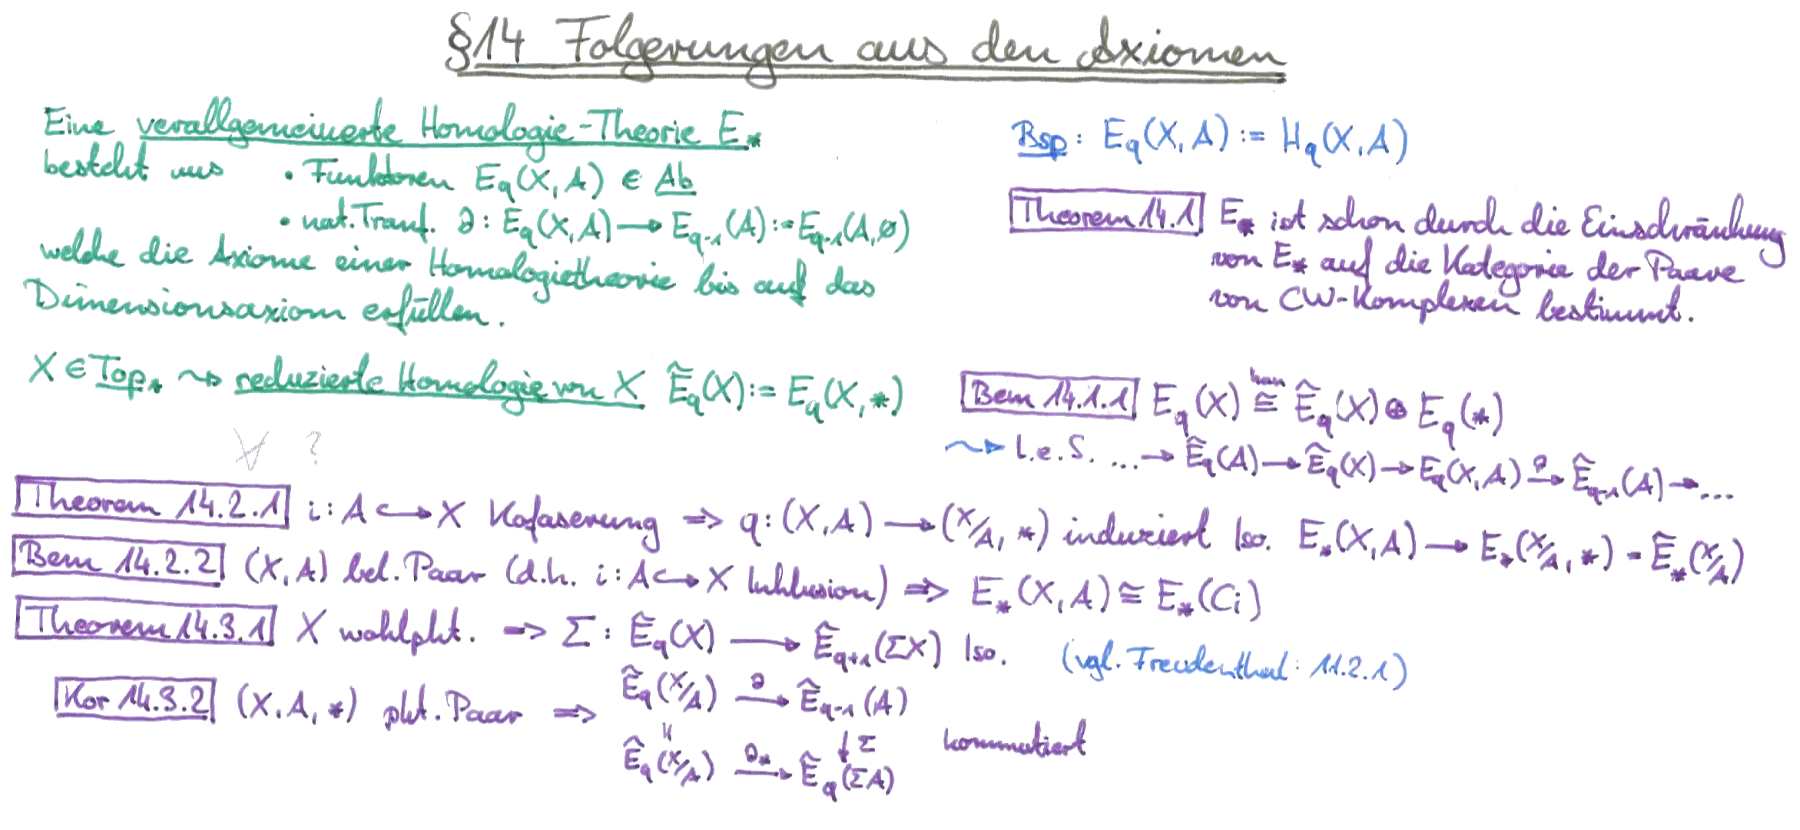 §14 Folgerungen aus den Axiomen
Eine verallgemeinerte Homologie-Theorie E_*
besteht aus • Funktoren E_q(X,A) ∈ Ab
• nat. Tranf. ∂: E_q(X,A) → E_{q-1}(A) := E_{q-1}(A,∅)
welche die Axiome einer Homologietheorie bis auf das
Dimensionsaxiom erfüllen.
Bsp: E_q(X,A) := H_q(X,A)
Theorem 14.1 E_* ist schon durch die Einschränkung
von E_* auf die Kategorie der Paare
von CW-Komplexen bestimmt.
X ∈ Top_* ⇝ reduzierte Homologie von X Ẽ_q(X) := E_q(X,*)
∀ ?
Bem 14.1.1 E_q(X) ≅^{kan} Ẽ_q(X) ⊕ E_q(*)
⇝ l.e.S. ... → Ẽ_q(A) → Ẽ_q(X) → E_q(X,A) →^∂ Ẽ_{q-1}(A) → ...
Theorem 14.2.1 i: A ↪ X Kofaserung ⇒ q: (X,A) → (X/A, *) induziert Iso. E_*(X,A) → E_*(X/A, *) = Ẽ_*(X/A)
Bem 14.2.2 (X,A) bel. Paar (d.h. i: A ↪ X Inklusion) ⇒ E_*(X,A) ≅ E_*(Ci)
Theorem 14.3.1 X wohlpkt. ⇒ Σ: Ẽ_q(X) → Ẽ_{q+1}(ΣX) Iso. (vgl. Freudenthal: 11.2.1)
Kor 14.3.2 (X,A,*) pkt. Paar ⇒ Ẽ_q(X/A) →^∂ Ẽ_{q-1}(A)
∥ ↓Σ kommutiert
Ẽ_q(X/A) →^{∂_*} Ẽ_q(ΣA)